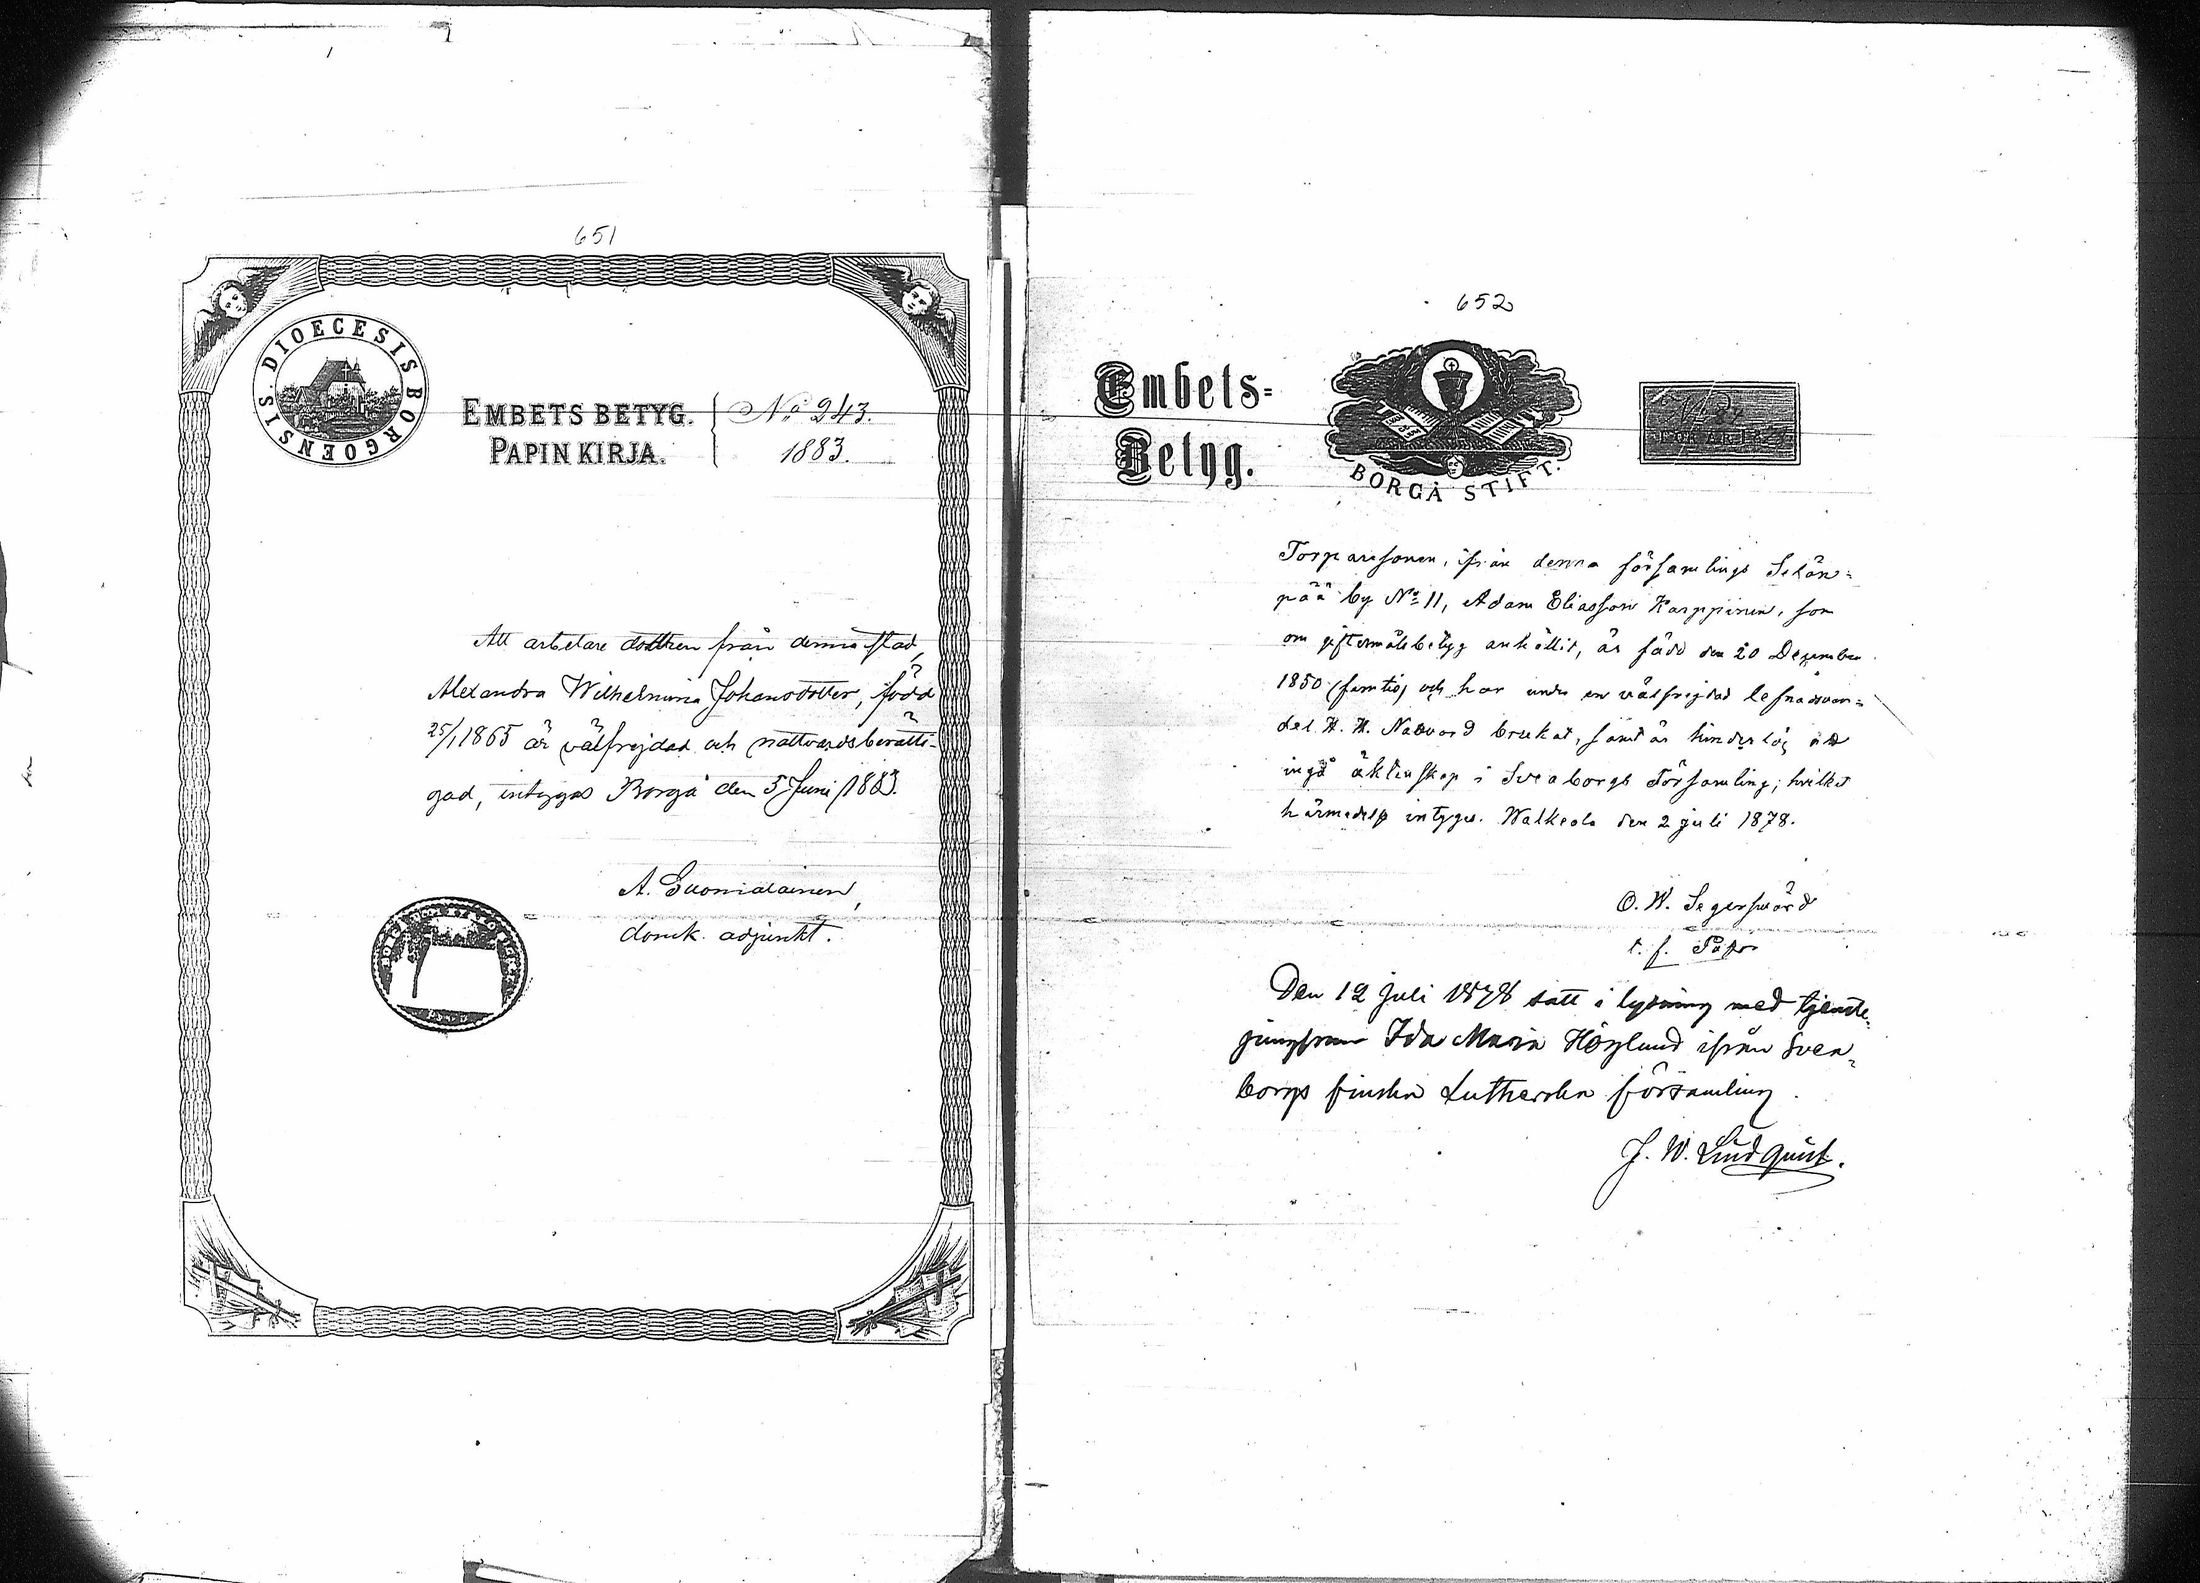 651
DIOECESIS BORGOENSIS.
EMBETS BETYG. No 243.
PAPIN KIRJA. 1883.
Att arbetare dottren från denna stad,
Alexandra Wilhelmina Johansdotter, född
25/1 1865 är välfrejdad och nattvardsberätti-
gad, intygas Borgå den 5 Juni 1883.
A. Suomalainen,
domk. adjunkt.
652
Embets-
Betyg.
BORGÅ STIFT.
FÖR ÅR 187
Torparesonen, ifrån denna församlings Selän-
pää by No 11, Adam Eliasson Karppinen, som
om giftermålsbetyg anhållit, är född den 20 December
1850 (femtio) och har under en välfrejdad lefnadsvan-
del H. H. Nattvard brukat, samt är hinderlös att
ingå äktenskap i Sveaborgs Församling; hvilket
härmedelst intygas. Walkeala den 2 juli 1878.
O. W. Segersvärd
t. f. Past
Den 12 Juli 1878 satt i lysning med tjenste-
jungfrun Ida Maria Höglund ifrån Svea-
borgs finska Lutherska församling.
J. W. Lindquist.